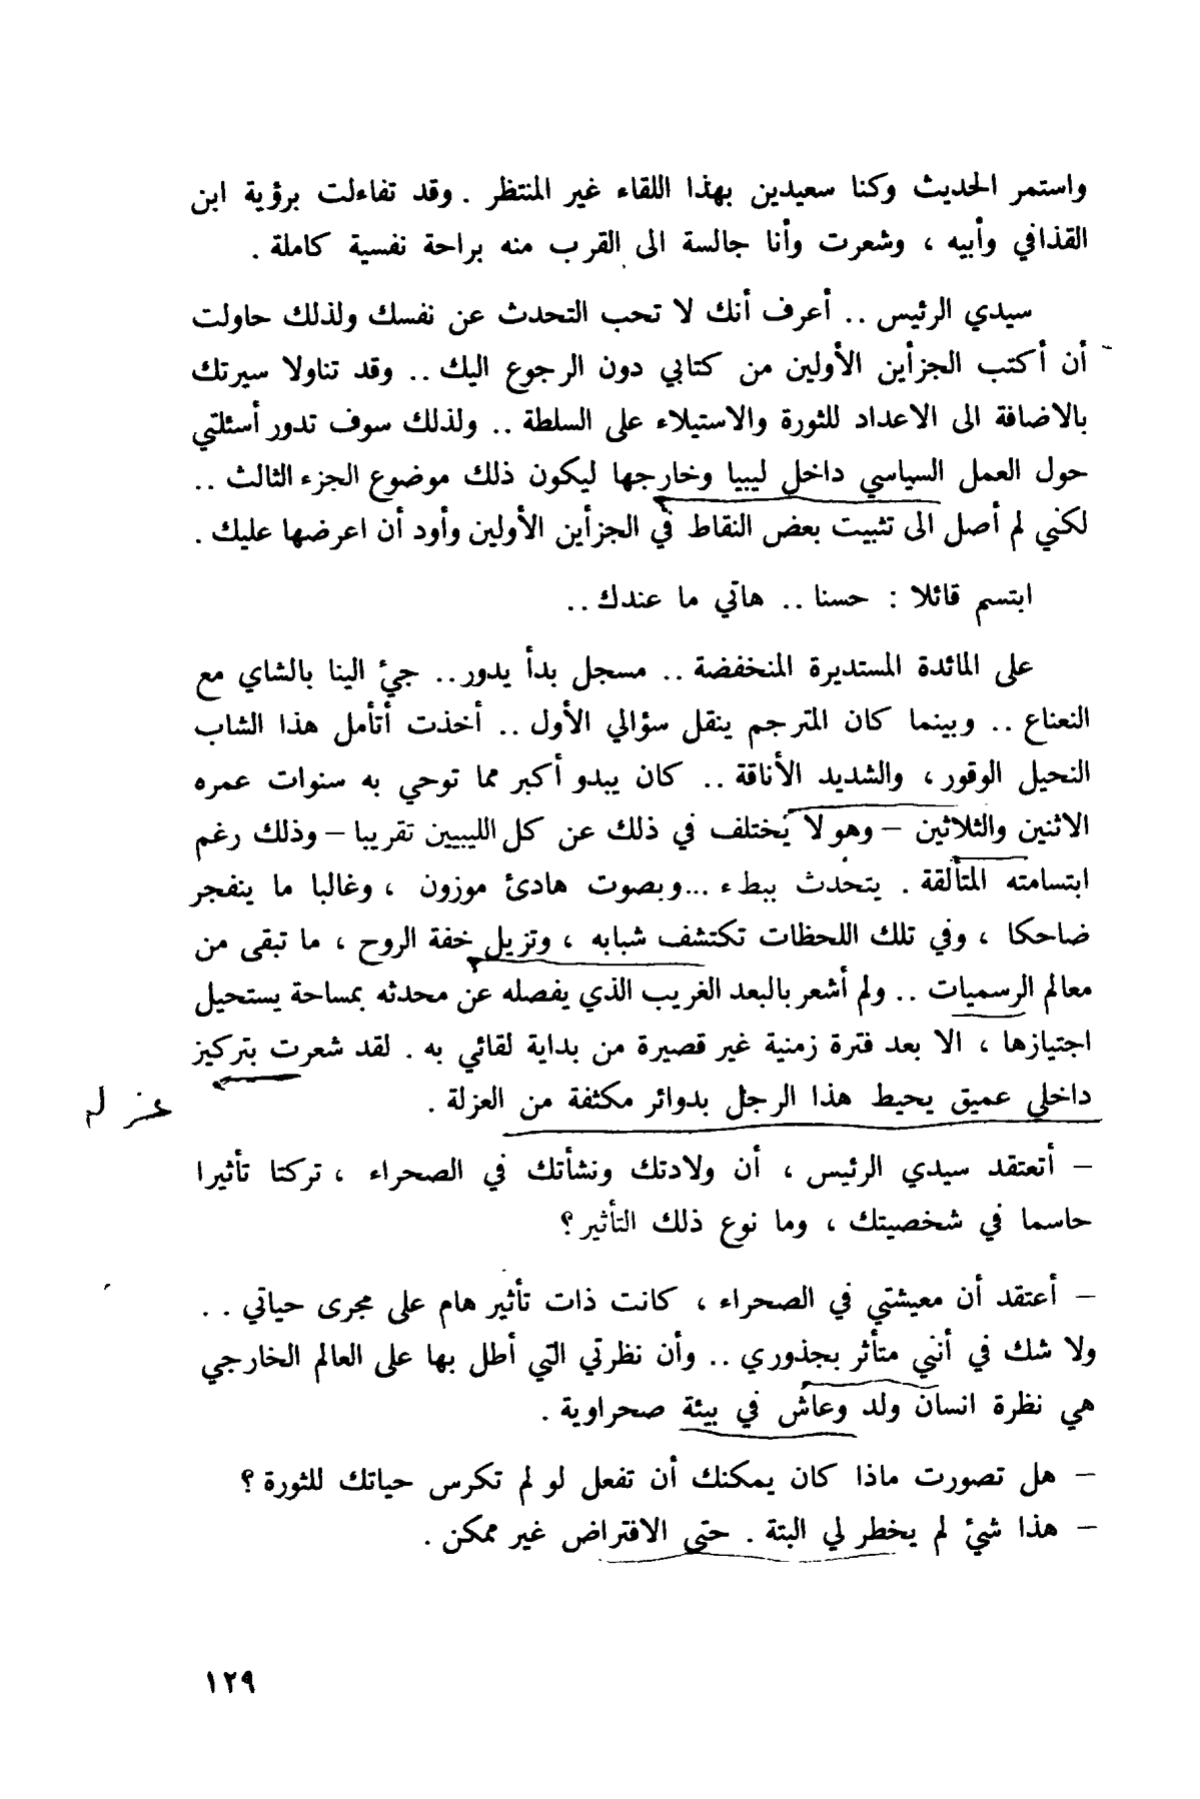 واستمر الحديث وكنا سعيدين بهذا اللقاء غير المنتظر . وقد تفاءلت برؤية ابن
القذافي وأبيه ، وشعرت وأنا جالسة الى القرب منه براحة نفسية كاملة .
سيدي الرئيس .. أعرف أنك لا تحب التحدث عن نفسك ولذلك حاولت
أن أكتب الجزأين الأولين من كتابي دون الرجوع اليك .. وقد تناولا سيرتك
بالاضافة الى الاعداد للثورة والاستيلاء على السلطة .. ولذلك سوف تدور أسئلتي
حول العمل السياسي داخل ليبيا وخارجها ليكون ذلك موضوع الجزء الثالث ..
لكني لم أصل الى تثبيت بعض النقاط في الجزأين الأولين وأود أن اعرضها عليك .
ابتسم قائلا : حسنا .. هاتي ما عندك ..
على المائدة المستديرة المنخفضة .. مسجل بدأ يدور .. جيُ الينا بالشاي مع
النعناع .. وبينما كان المترجم ينقل سؤالي الأول .. أخذت أتأمل هذا الشاب
النحيل الوقور ، والشديد الأناقة .. كان يبدو أكبر مما توحي به سنوات عمره
الاثنين والثلاثين – وهو لا يختلف في ذلك عن كل الليبيين تقريبا – وذلك رغم
ابتسامته المتألقة . يتحدث ببطء ... وبصوت هادئ موزون ، وغالبا ما ينفجر
ضاحكا ، وفي تلك اللحظات تكتشف شبابه ، وتزيل خفة الروح ، ما تبقى من
معالم الرسميات .. ولم أشعر بالبعد الغريب الذي يفصله عن محدثه بمساحة يستحيل
اجتيازها ، الا بعد فترة زمنية غير قصيرة من بداية لقائي به . لقد شعرت بتركيز
داخلي عميق يحيط هذا الرجل بدوائر مكثفة من العزلة .
– أتعتقد سيدي الرئيس ، أن ولادتك ونشأتك في الصحراء ، تركتا تأثيرا
حاسما في شخصيتك ، وما نوع ذلك التأثير ؟
– أعتقد أن معيشتي في الصحراء ، كانت ذات تأثير هام على مجرى حياتي ..
ولا شك في أنني متأثر بجذوري .. وأن نظرتي التي أطل بها على العالم الخارجي
هي نظرة انسان ولد وعاش في بيئة صحراوية .
– هل تصورت ماذا كان يمكنك أن تفعل لو لم تكرس حياتك للثورة ؟
– هذا شيُ لم يخطر لي البتة . حتى الافتراض غير ممكن .
١٢٩